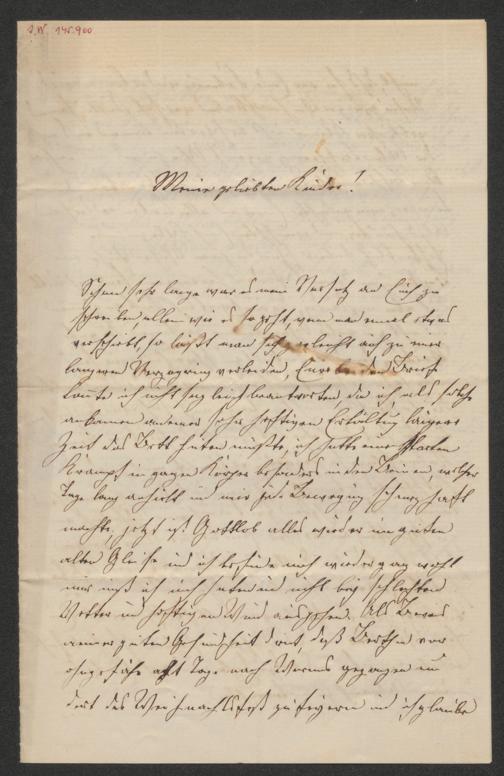 I.N. 145.900
Meine geliebten Kinder!
Schon sehr lange war es mein Vorsatz an Euch zu
schreiben, allein wie es so geht, wenn man einmal etwas
verschiebt, so läßt man sich vielleicht auch zu einer
längeren Verzögerung verleiden, Eure beiden Briefe
konnte ich nicht sogleich beantworten da ich, als solche
ankamen an einer sehr heftigen Erkältung längere
Zeit das Bett hüten mußte, ich hatte einen starken
Krampf im ganzen Körper besonders in den Beinen, welcher
Tage lang anhielt und mir jede Bewegung schmerzhaft
machte, jetzt ist Gottlob alles wieder im guten
alten Gleise und ich befinde mich wieder ganz wohl
nur muß ich mich hüten und nicht bey schlechten
Wetter und heftigen Wind ausgehen. Als Beweis
meiner guten Gesundheit dient, daß Bertha vor
ohngefähr acht Tage nach Worms gegangen um
dort das Weihnachtsfest zu feyern und ich glaube